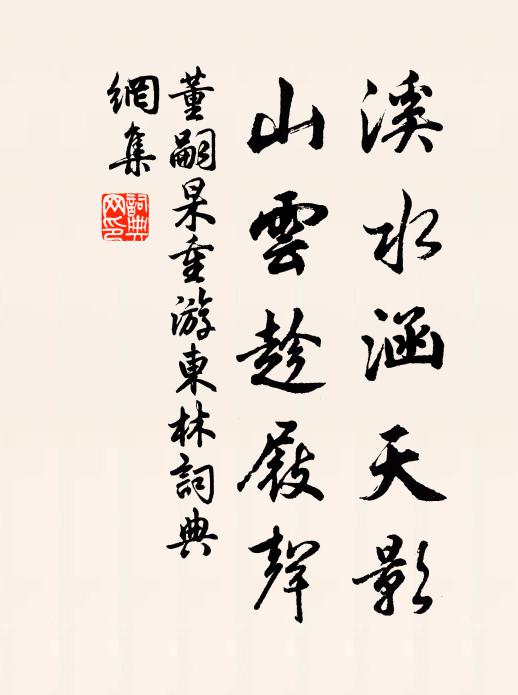 溪水涵天影
山雲趁屐聲
董嗣杲重游東林詞典
網集
詞典
网印